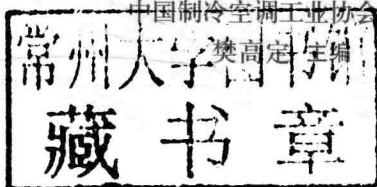 中国制冷空调工业协会
樊高定 主编
常州大学图书馆
藏书章